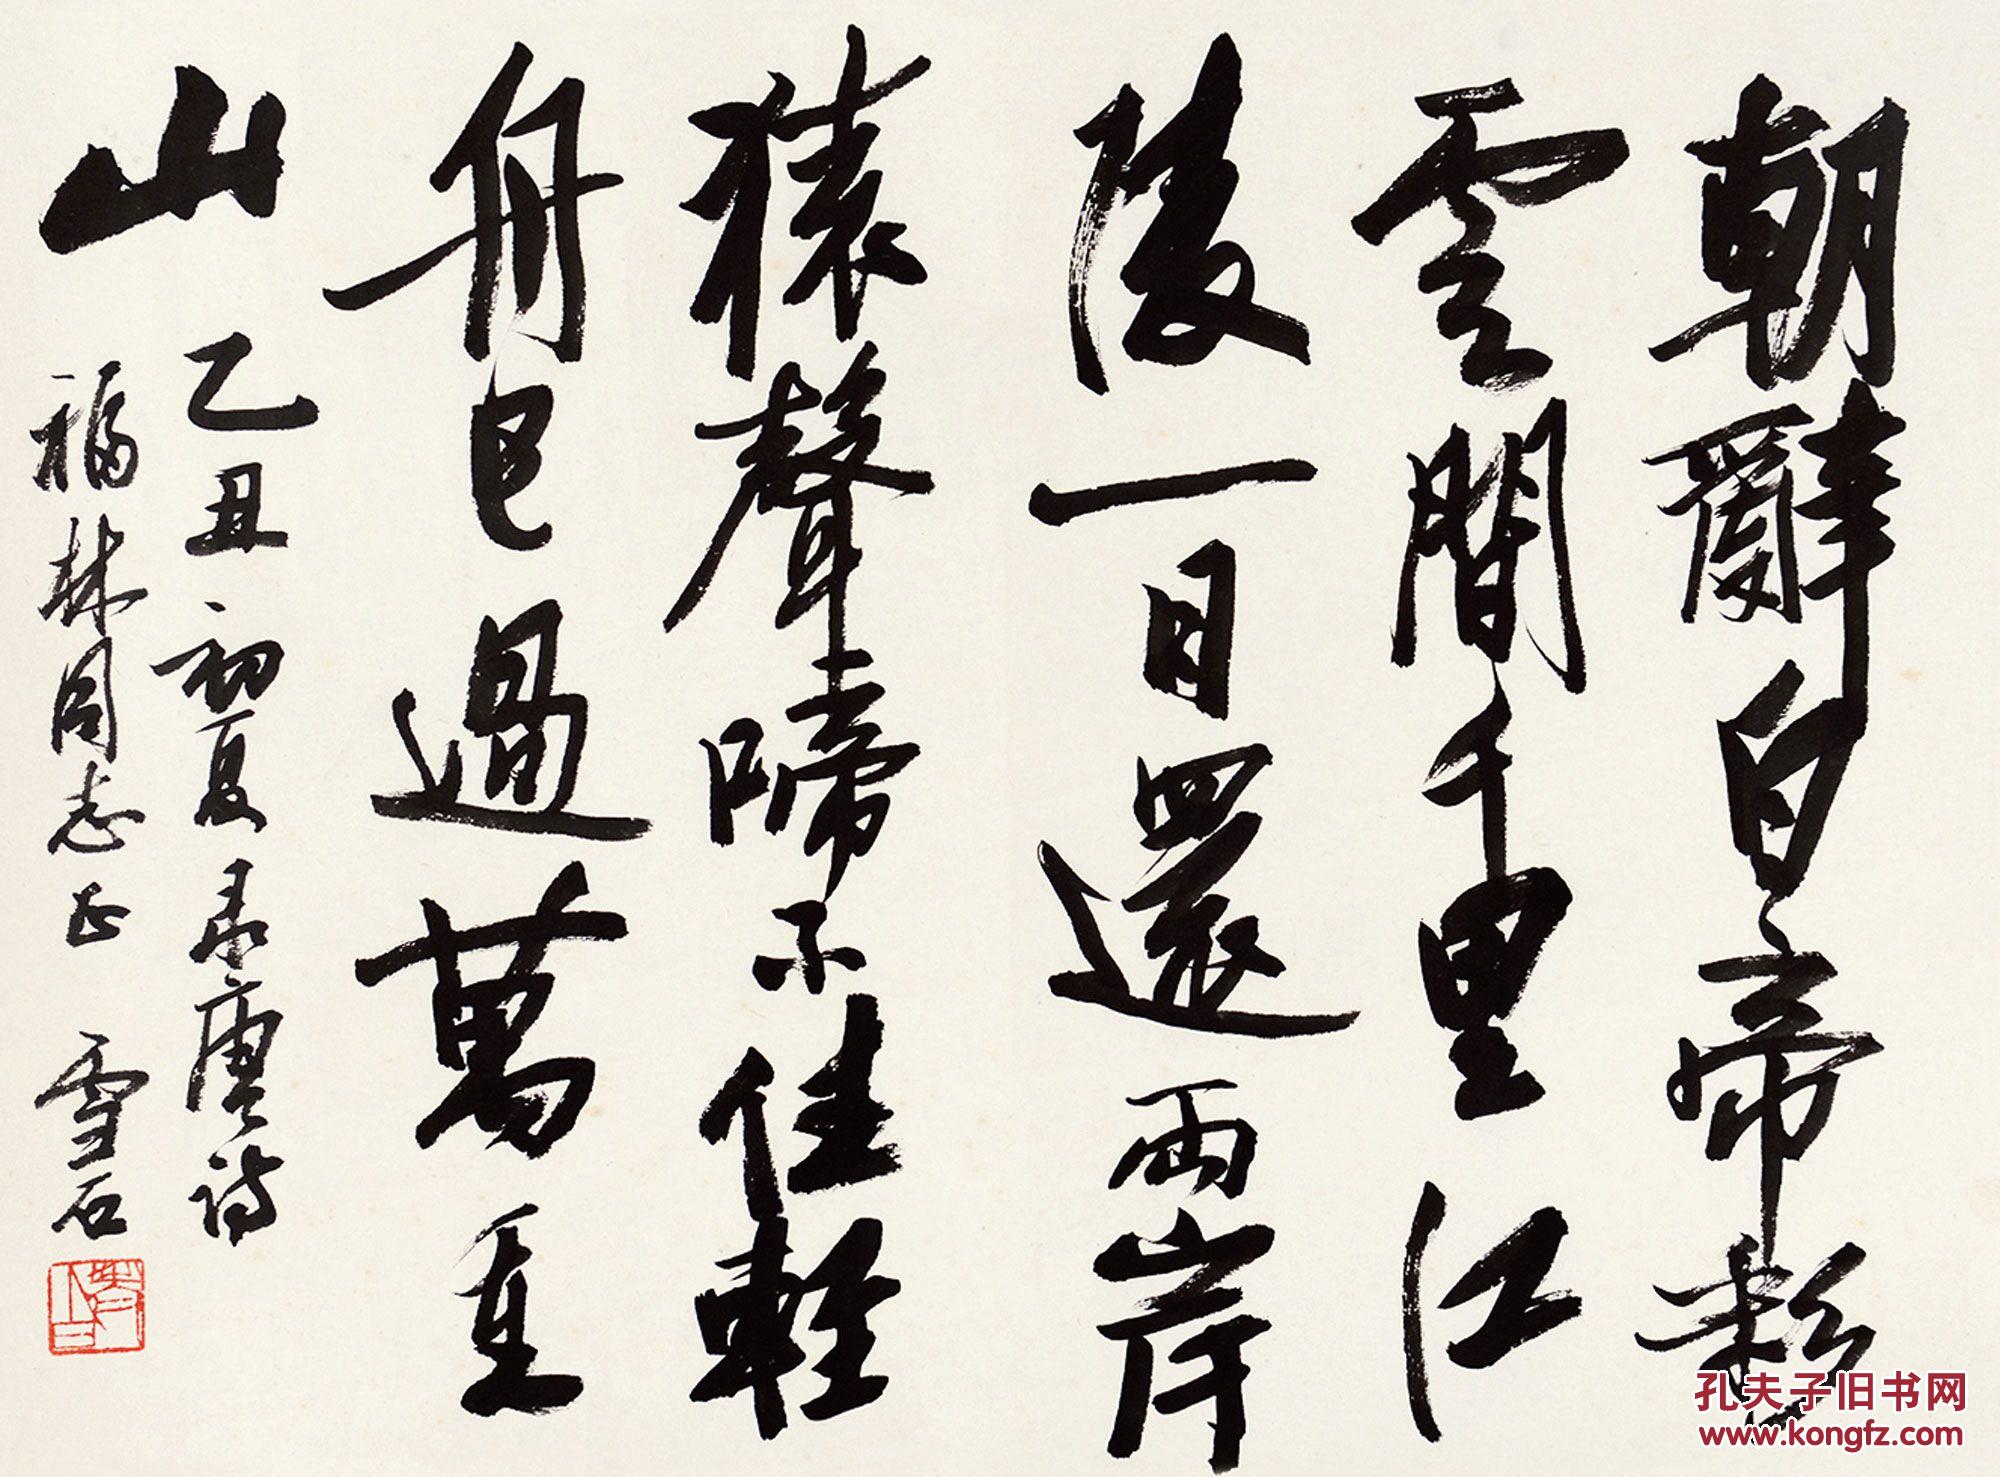 朝辭白帝彩
雲間千里江
陵一日還兩岸
猿聲啼不住輕
舟已過萬重
山
乙丑初夏录唐诗
福林同志正 雪石
孔夫子旧书网
www.kongfz.com